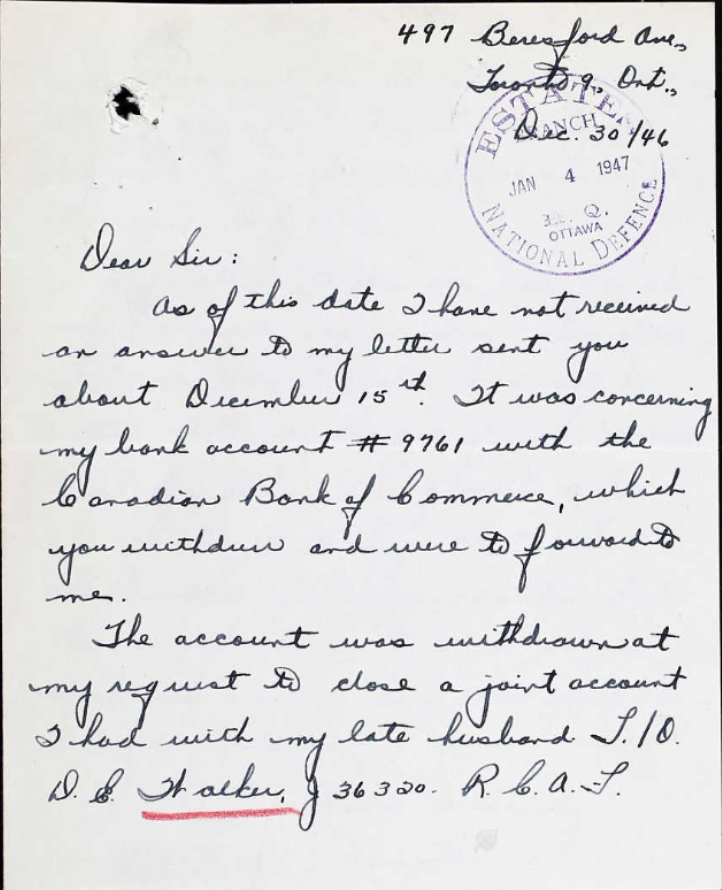 497 Beresford Ave.,
Toronto 9, Ont.,
Dec. 30/46
ESTATES
BRANCH
JAN 4 1947
Q.
OTTAWA
NATIONAL DEFENCE
Dear Sir:
As of this date I have not received
an answer to my letter sent you
about December 15th. It was concerning
my bank account # 9761 with the
Canadian Bank of Commerce, which
you withdrew and were to forward to
me.
The account was withdrawn at
my request to close a joint account
I had with my late husband F./O.
D. E. Walker, J 36320. R.C.A.F.